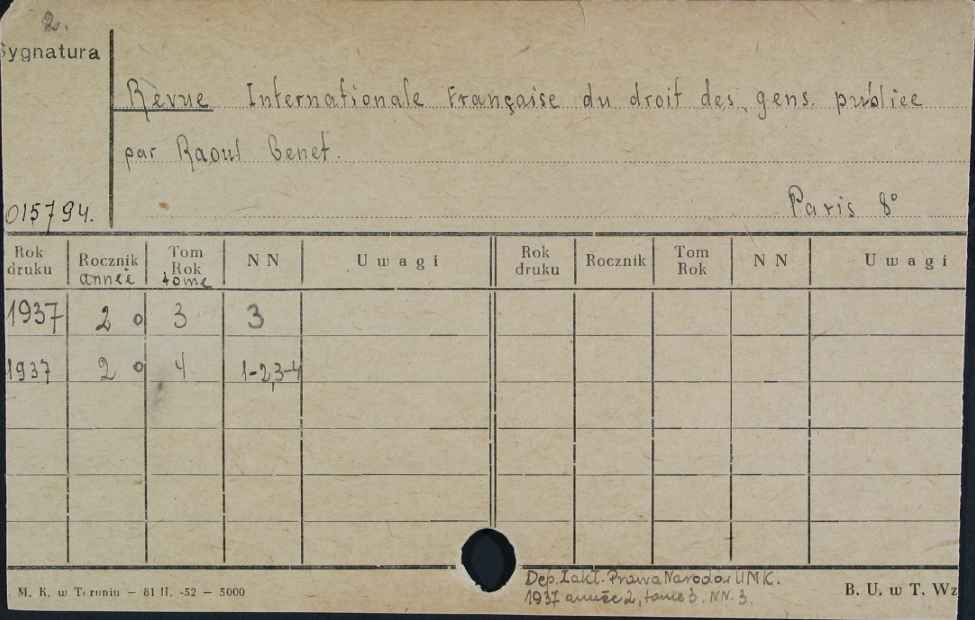 2.
Sygnatura
Révue Internationale Française du droit des gens. publiee
par Raoul Genet.
015794.
Paris 8°
Rok druku Rocznik année Tom Rok tome N N Uwagi Rok druku Rocznik Tom Rok N N Uwagi
1937 2 o 3 3
1937 2 o 4 1-2,3-4
M. K. w Toruniu — 81 II. -52 — 5000
Dep. Zakł. Prawa Narodów UMK.
1937 année 2, tome 3. NN. 3.
B. U. w T. Wz